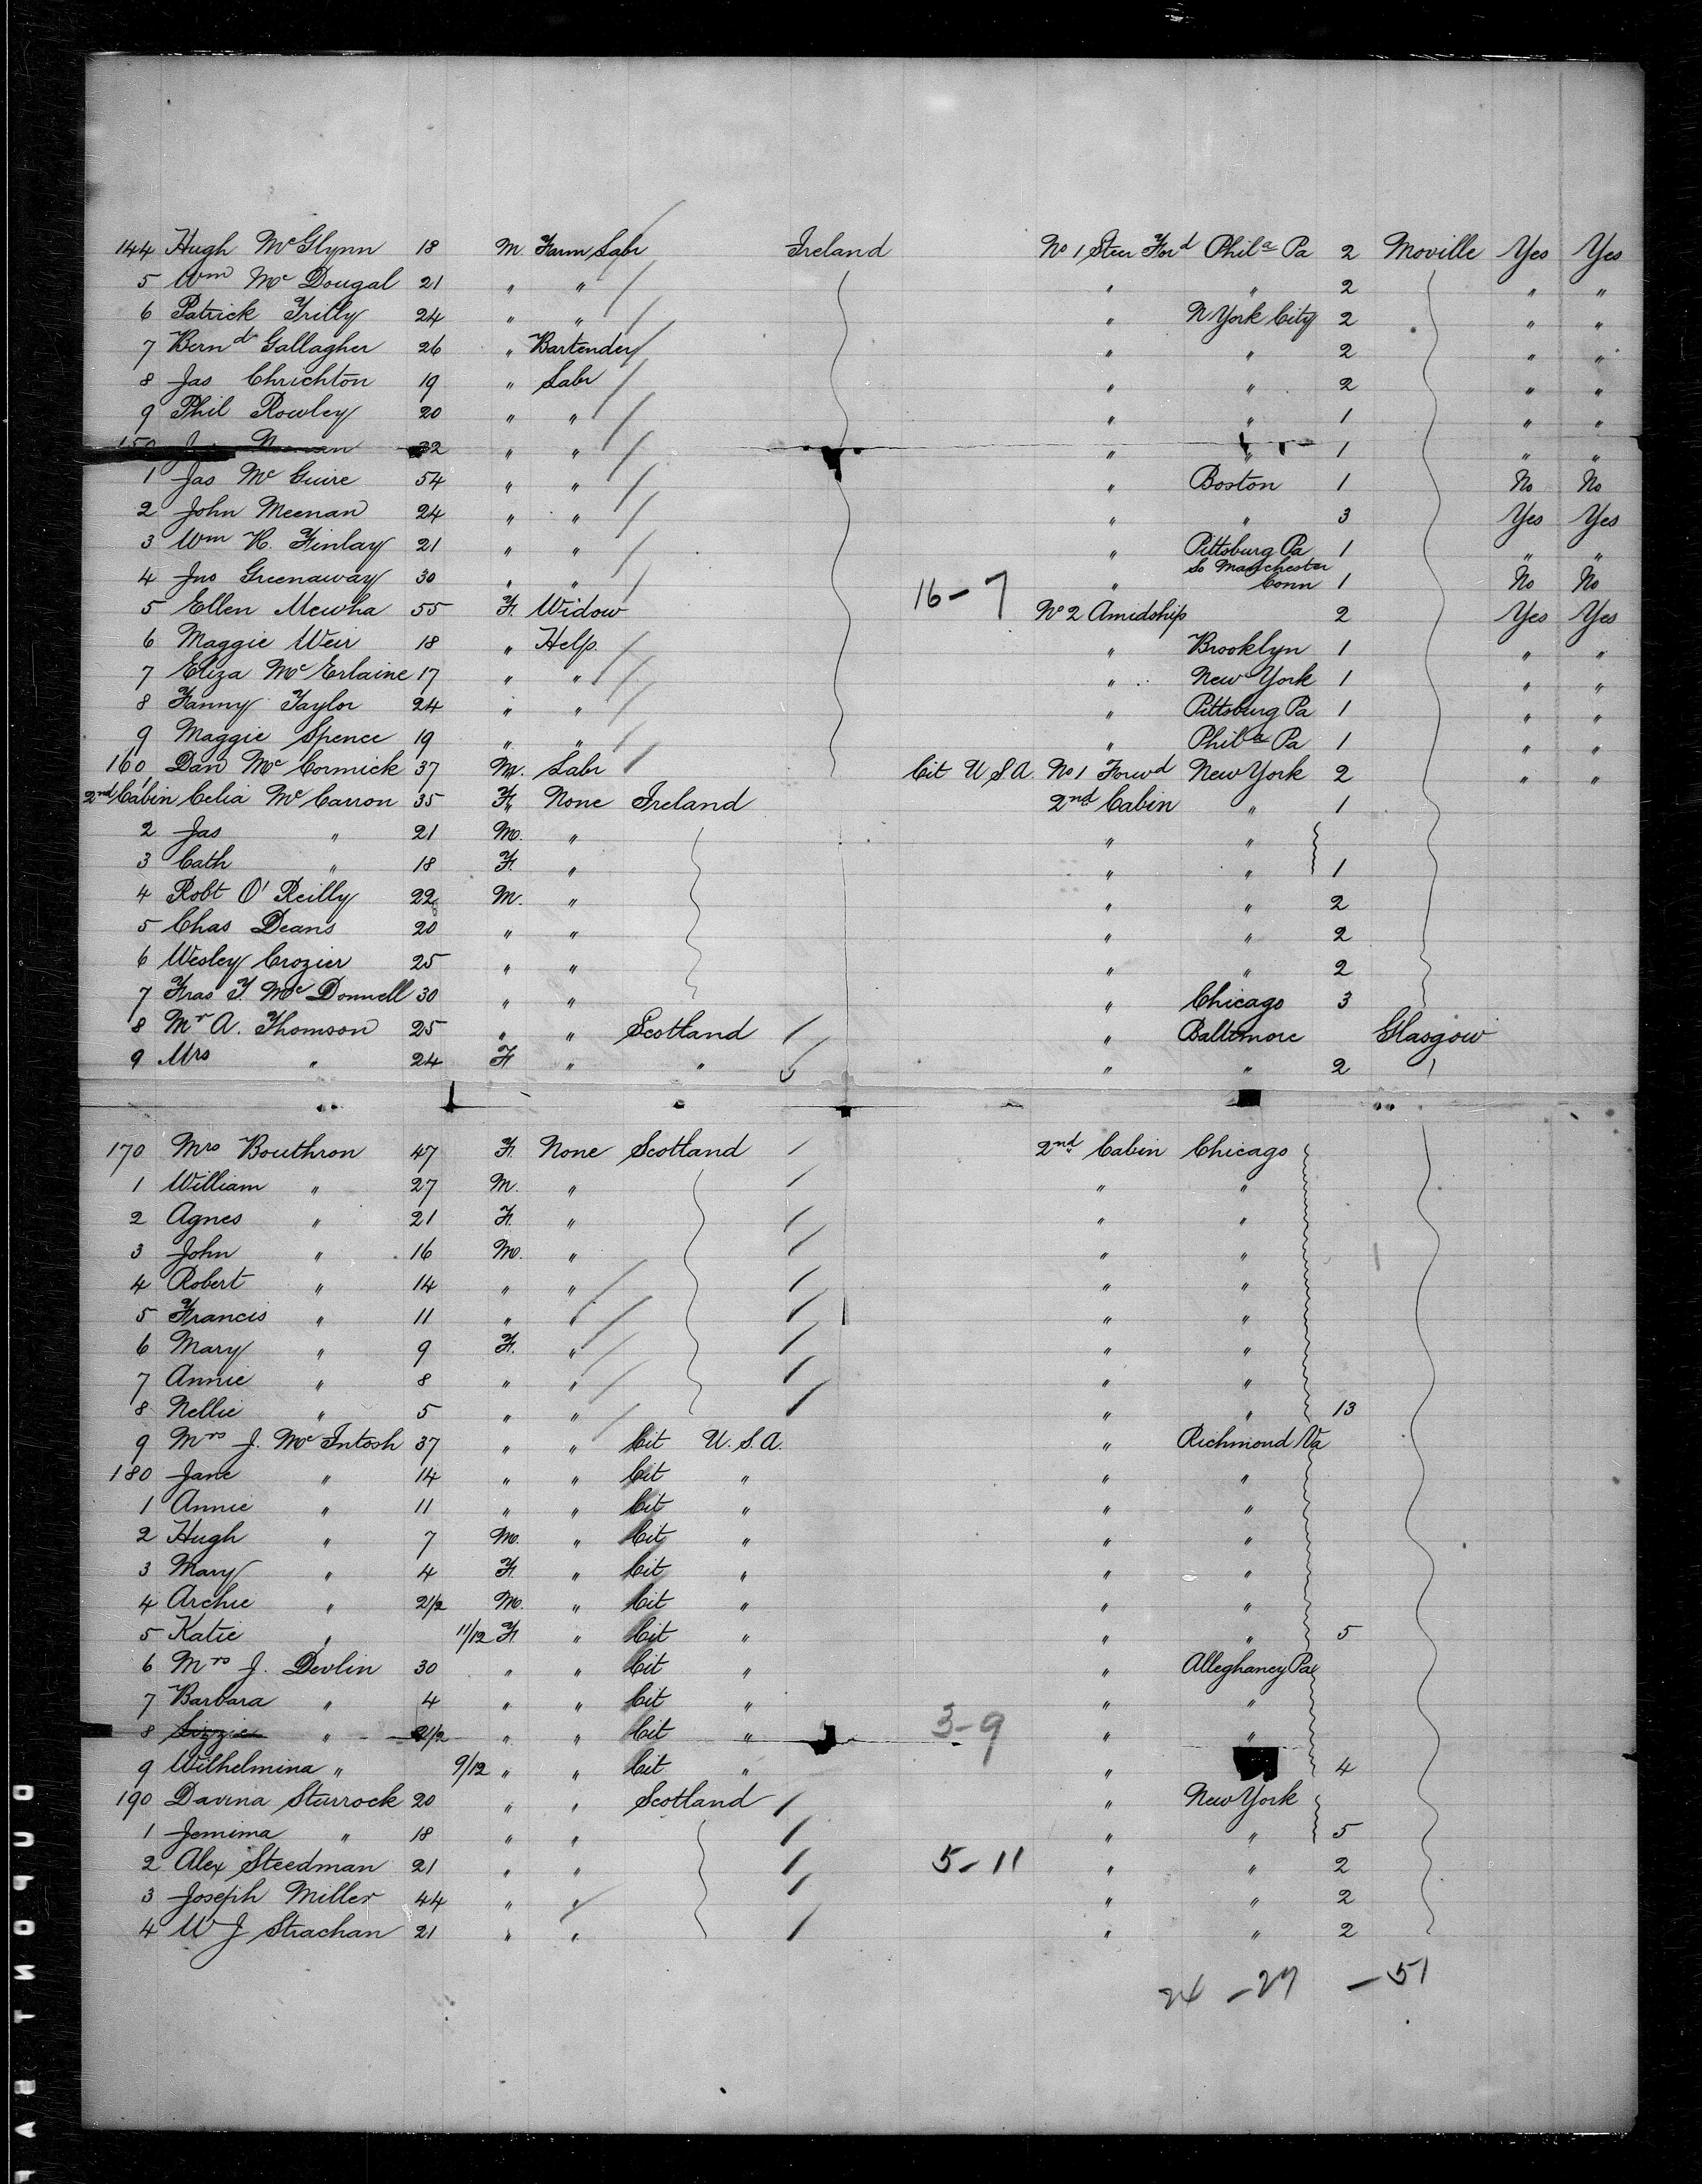 144 Hugh McGlynn 18 M. Farm Labr Ireland No 1 Steer Ford Phila Pa 2 Moville Yes Yes
5 Wm Mc Dougal 21 " " " " 2 " "
6 Patrick Trilly 24 " " " N York City 2 " "
7 Bernd Gallagher 26 " Bartender " " 2 " "
8 Jas Chrichton 19 " Labr " " 2 " "
9 Phil Rowley 20 " " " " 1 " "
150 32 " " " " 1 " "
1 Jas Mc Guire 54 " " " Boston 1 No No
2 John Meenan 24 " " " " 3 Yes Yes
3 Wm H. Finlay 21 " " " Pittsburg Pa 1 " "
So Manchester
4 Jno Greenaway 30 " " 16-7 " Conn 1 No No
5 Ellen Mewha 55 F. Widow No 2 Amidship 2 Yes Yes
6 Maggie Weir 18 " Help. " Brooklyn 1 " "
7 Eliza Mc Erlaine 17 " " " New York 1 " "
8 Fanny Taylor 24 " " " Pittsburg Pa 1 " "
9 Maggie Spence 19 " " " Phila Pa 1 " "
160 Dan Mc Cormick 37 M. Labr Cit U.S.A. No 1 Forwd New York 2 " "
2nd Cabin Celia Mc Carron 35 F. None Ireland 2nd Cabin " 1
2 Jas " 21 M. " " "
3 Cath " 18 F. " " " 1
4 Robt O'Reilly 22 M. " " " 2
5 Chas Deans 20 " " " " 2
6 Wesley Crozier 25 " " " " 2
7 Fras T. Mc Donnell 30 " " " Chicago 3
8 Mr A. Thomson 25 " " Scotland " Baltimore Glasgow
9 Mrs " 24 F " " " " 2
170 Mrs Bouthron 47 F. None Scotland 2nd Cabin Chicago
1 William " 27 M. " " "
2 Agnes " 21 F. " " "
3 John " 16 M. " " "
4 Robert " 14 " " " "
5 Francis " 11 " " " "
6 Mary " 9 F. " " "
7 Annie " 8 " " " "
8 Nellie " 5 " " " " 13
9 Mrs J. Mc Intosh 37 " " Cit U.S.A. " Richmond Va
180 Jane " 14 " " Cit " " "
1 Annie " 11 " " Cit " " "
2 Hugh " 7 M. " Cit " " "
3 Mary " 4 F. " Cit " " "
4 Archie " 2 1/2 M. " Cit " " "
5 Katie " 11/12 F. " Cit " " " 5
6 Mrs J. Devlin 30 " " Cit " " Alleghaney Pa
7 Barbara " 4 " " Cit " " "
8 Lizzie " 2 1/2 " " Cit " 3-9 " "
9 Wilhelmina " 9/12 " " Cit " " 4
190 Davina Sturrock 20 " " Scotland " New York
1 Jemima " 18 " " " " 5
2 Alex Steedman 21 " " 5-11 " " 2
3 Joseph Miller 44 " " " " 2
4 W J Strachan 21 " " " " 2
24 - 27 - 51